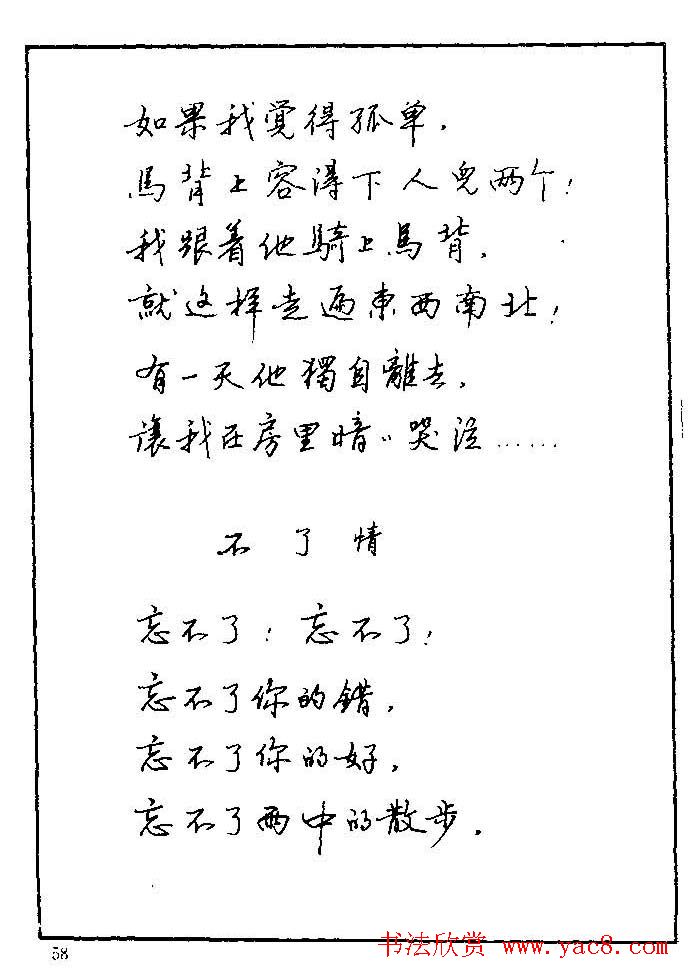 如果我覺得孤单，
馬背上容得下人兒两个！
我跟着他騎上馬背，
就这样走遍東西南北！
有一天他獨自離去，
讓我在房里暗〃哭泣……
不了情
忘不了！忘不了！
忘不了你的錯，
忘不了你的好，
忘不了雨中的散步，
58
书法欣赏 www.yac8.com